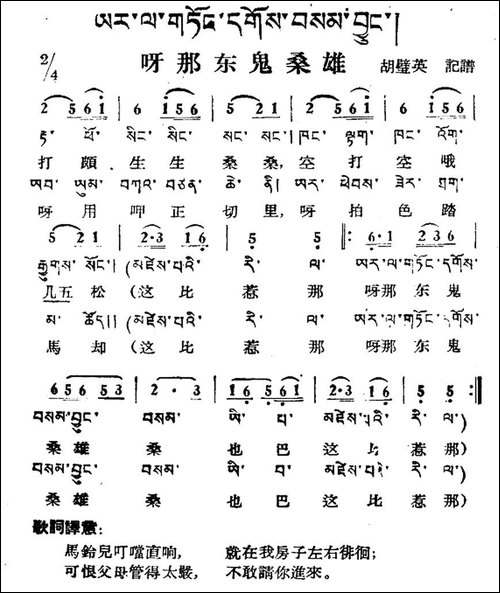 ཨར་ལ་གཏོང་དགོས་བསམ་བྱུང་།
2/4 呀那东鬼桑雄 胡璧英 記譜
2 5 6 1 | 6 1 5 6 | 5 2 1 | 5 6 1 | 6 1 5 6 |
རྟ་ ཕོ་ སིང་ སིང་ སང་ སང་།ཁང་ ལྟག་ ཁང་ འོག་
打 頗 生 生 桑 桑, 空 打 空 哦
ཨབ་ ཡུམ་ བཀའ་ བཙན་ ཆེ་ ནི། ཨར་ ཕེབས་ ཟེར་ གྲག་
呀 用 呷 正 切 里, 呀 拍 色 踏
5 2 1 | 2·3 1 6 | 5 5 |: 6·1 2 3 6 |
རྒྱུགས་ སོང་།(མཛེས་པའི་ རི་ ལ་ ཨར་ལ་གཏོང་དགོས་
几五 松 (这比 惹 那 呀那东鬼
མ་ ཚོད།།(མཛེས་པའི་ རི་ ལ་ ཨར་ལ་གཏོང་དགོས་
馬 却 (这比 惹 那 呀那东鬼
6 5 6 5 3 | 2 · 3 | 1 6 5 6 1 | 2·3 1 6 | 5 5 :|
བསམ་བྱུང་ བསམ་ ཡི་ པ་ མཛེས་པའི་ རི་ ལ་)
桑雄 桑 也 巴 这比 惹 那)
བསམ་བྱུང་ བསམ་ ཡི་ པ་ མཛེས་པའི་ རི་ ལ་)
桑雄 桑 也 巴 这比 惹 那)
歌詞譯意:
馬鈴兒叮噹直响, 就在我房子左右徘徊;
可恨父母管得太嚴, 不敢請你進來。